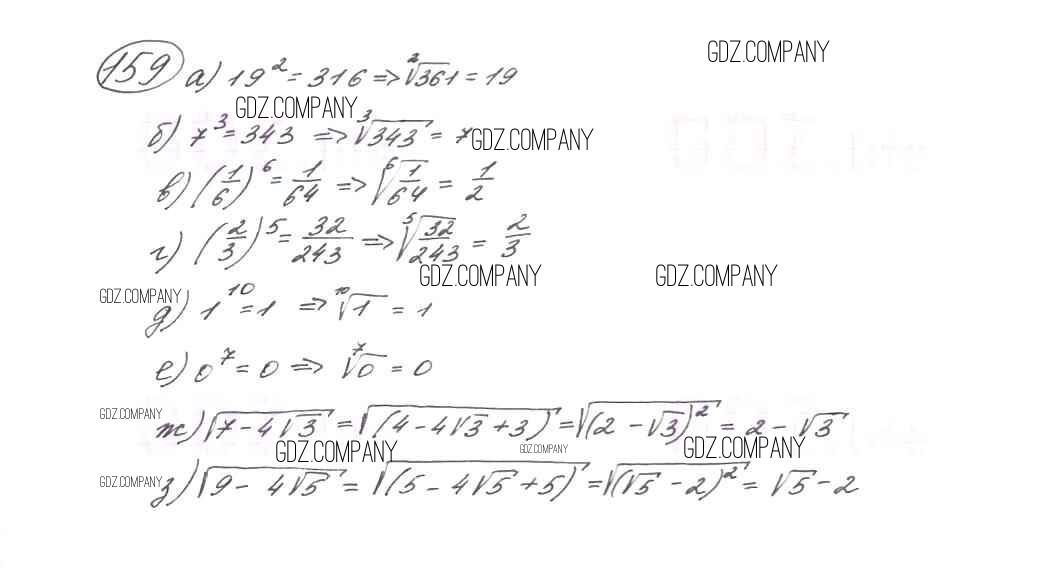 GDZ.COMPANY
159 а) 19² = 316 => ²√361 = 19
GDZ.COMPANY
б) 7³ = 343 => ³√343 = 7
GDZ.COMPANY
в) (1/6)⁶ = 1/64 => ⁶√(1/64) = 1/2
г) (2/3)⁵ = 32/243 => ⁵√(32/243) = 2/3
GDZ.COMPANY GDZ.COMPANY
GDZ.COMPANY
д) 1¹⁰ = 1 => ¹⁰√1 = 1
е) 0⁷ = 0 => ⁷√0 = 0
GDZ.COMPANY
ж) √(7 - 4√3) = √(4 - 4√3 + 3) = √((2 - √3)²) = 2 - √3
GDZ.COMPANY GDZ.COMPANY GDZ.COMPANY
GDZ.COMPANY
з) √(9 - 4√5) = √(5 - 4√5 + 5) = √((√5 - 2)²) = √5 - 2